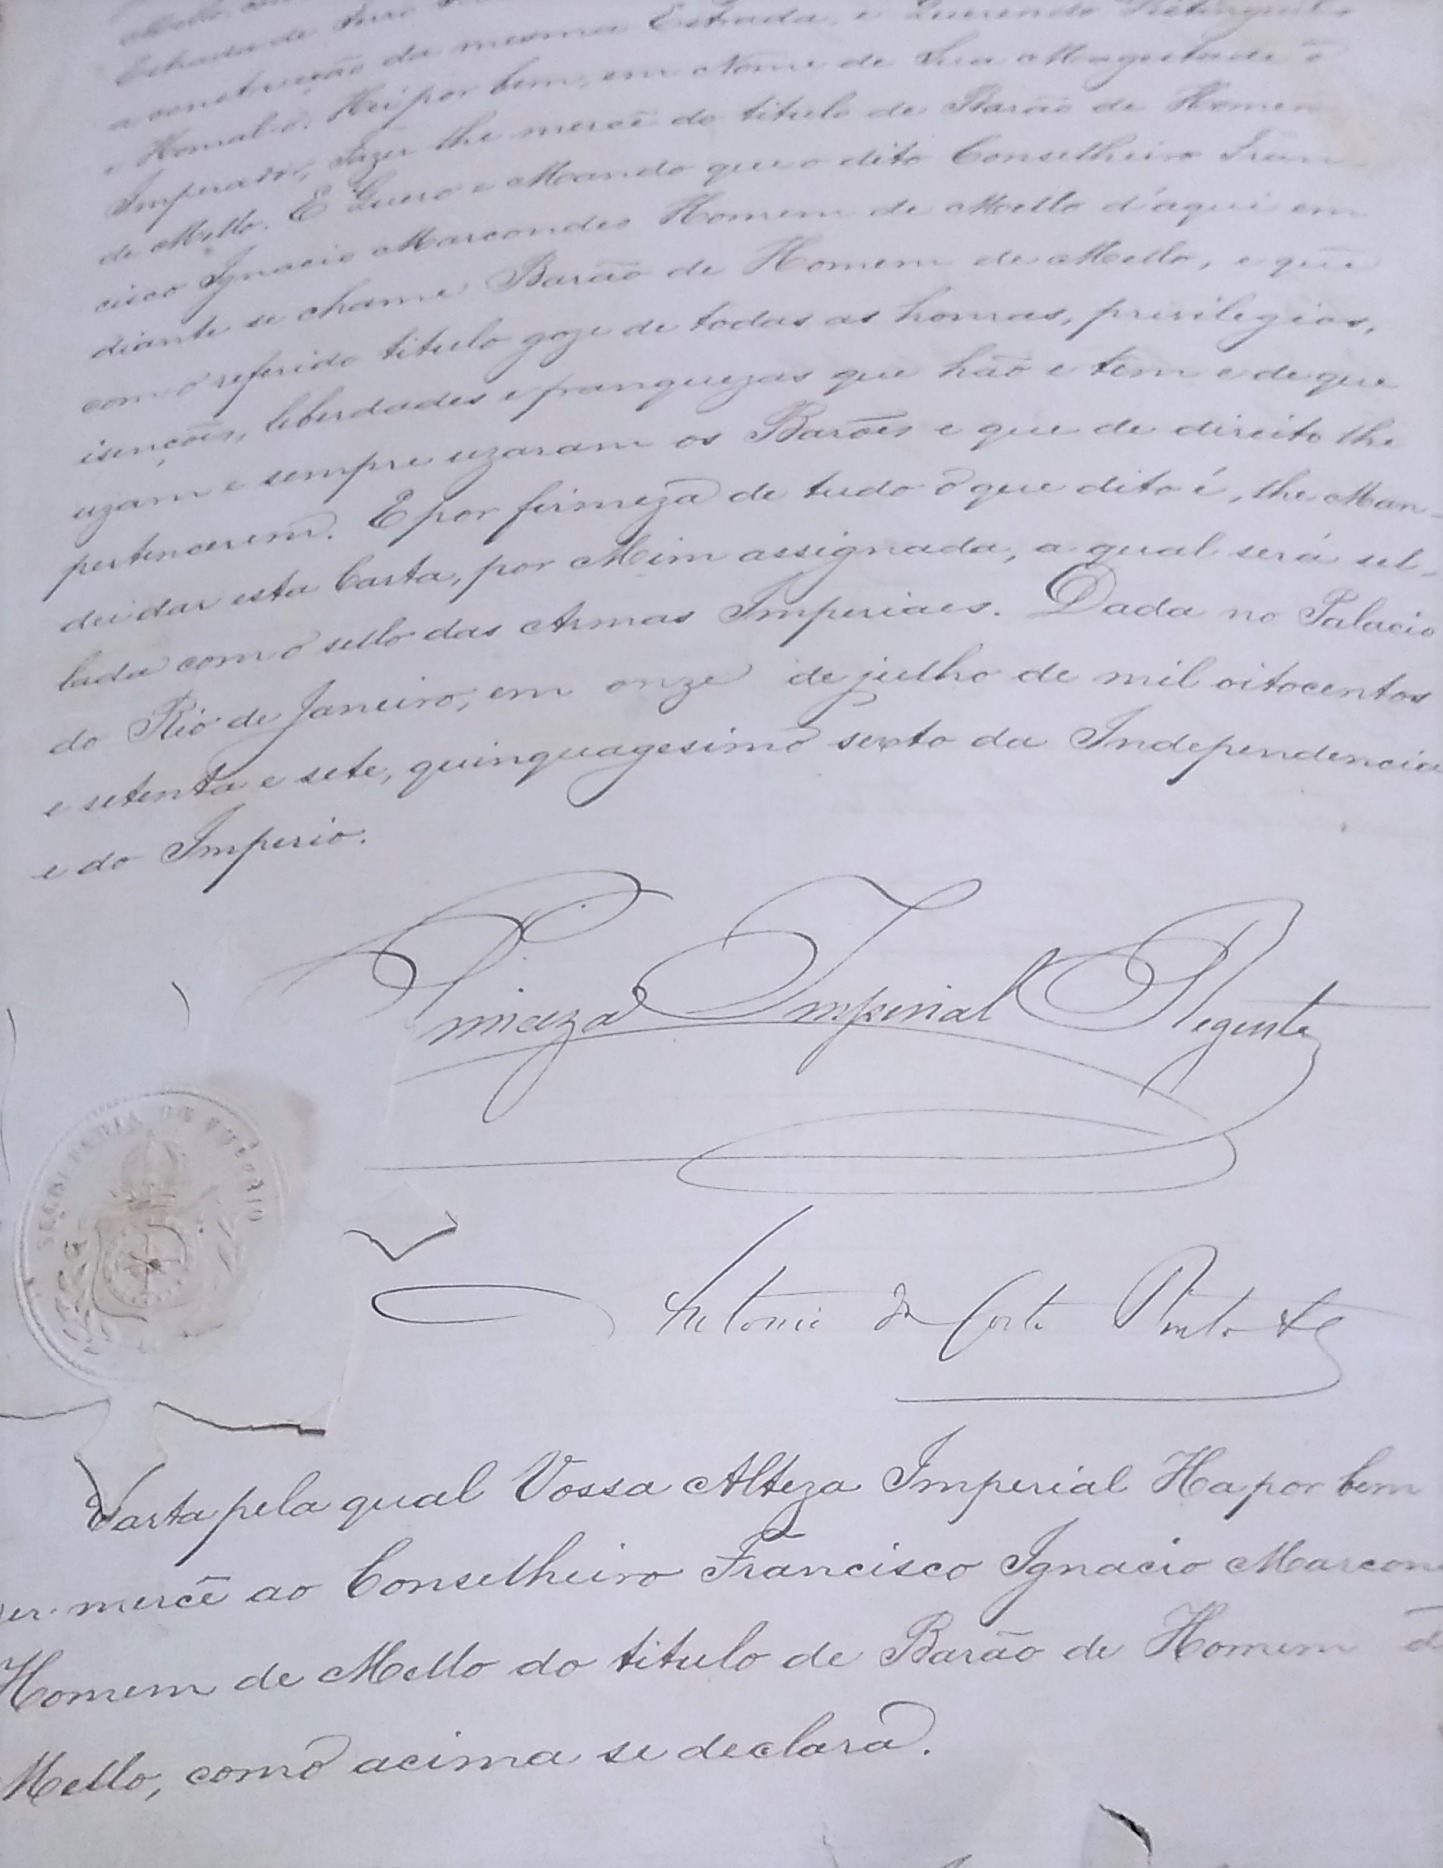 Estrada de Ferro
a construcção da mesma Estrada, e Querendo Distinguil-o
e Honral-o: Hei por bem, em Nome de Sua Magestade o
Imperador, fazer lhe mercê do titulo de Barão de Homem
de Mello. E Quero e Mando que o dito Conselheiro Fran-
cisco Ignacio Marcondes Homem de Mello d'aqui em
diante se chame Barão de Homem de Mello, e que
com o referido titulo goze de todas as honras, privilegios,
isenções, liberdades e franquezas que hão e têm e de que
uzam e sempre uzaram os Barões e que de direito lhe
pertencerem. E por firmeza de tudo o que dito é, lhe Man-
dei dar esta Carta, por Mim assignada, a qual será sel-
lada com o sello das Armas Imperiaes. Dada no Palacio
do Rio de Janeiro, em onze de julho de mil oitocentos
e setenta e sete, quinquagesimo sexto da Independencia
e do Imperio.
Princeza Imperial Regente
SECRETARIA DE IMPERIO
Antonio da Costa Pinto
Carta pela qual Vossa Alteza Imperial Ha por bem
zer mercê ao Conselheiro Francisco Ignacio Marcon
Homem de Mello do titulo de Barão de Homem d
Mello, como acima se declara.